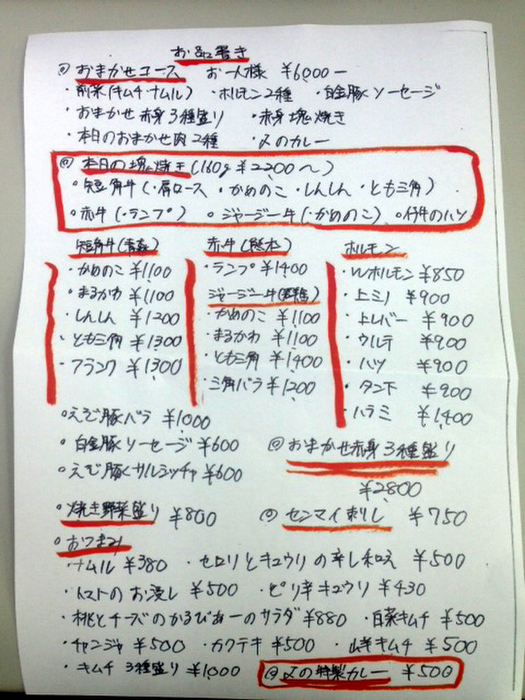 お品書き
◎おまかせコース お一人様 ¥6000ー
・前菜(キムチ ナムル) ・ホルモン2種 ・白金豚ソーセージ
・おまかせ赤身3種盛り ・赤身塊焼き
・本日のおまかせ肉2種 ・〆のカレー
◎本日の塊焼き(160g ¥2200〜)
・短角牛(・肩ロース ・かめのこ ・しんしん ・とも三角)
・赤牛(・ランプ) ◦ジャージー牛(・かめのこ) ◦仔牛のハツ
短角牛(青森)
・かめのこ ¥1100
・まるかわ ¥1100
・しんしん ¥1200
・とも三角 ¥1300
・フランク ¥1300
赤牛(熊本)
・ランプ ¥1400
ジャージー牛
・かめのこ ¥1100
・まるかわ ¥1100
・とも三角 ¥1400
・三角バラ ¥1200
ホルモン
・Wホルモン ¥850
・上ミノ ¥900
・上レバー ¥900
・ウルテ ¥900
・ハツ ¥900
・タン下 ¥900
・ハラミ ¥1400
◦えぞ豚バラ ¥1000
◦白金豚ソーセージ ¥600
◦えぞ豚サルシッチャ ¥600
◎おまかせ赤身3種盛り
¥2800
◦焼き野菜盛り ¥800
◎センマイ刺し ¥750
◦おつまみ
・ナムル ¥380 ・セロリとキュウリの辛し和え ¥500
・トマトのお浸し ¥500 ・ピリ辛キュウリ ¥430
・桃とチーズのかるぴあーのサラダ ¥880 ・白菜キムチ ¥500
・チャンジャ ¥500 ・カクテキ ¥500 ・山芋キムチ ¥500
・キムチ3種盛り ¥1000 ◎〆の特製カレー ¥500